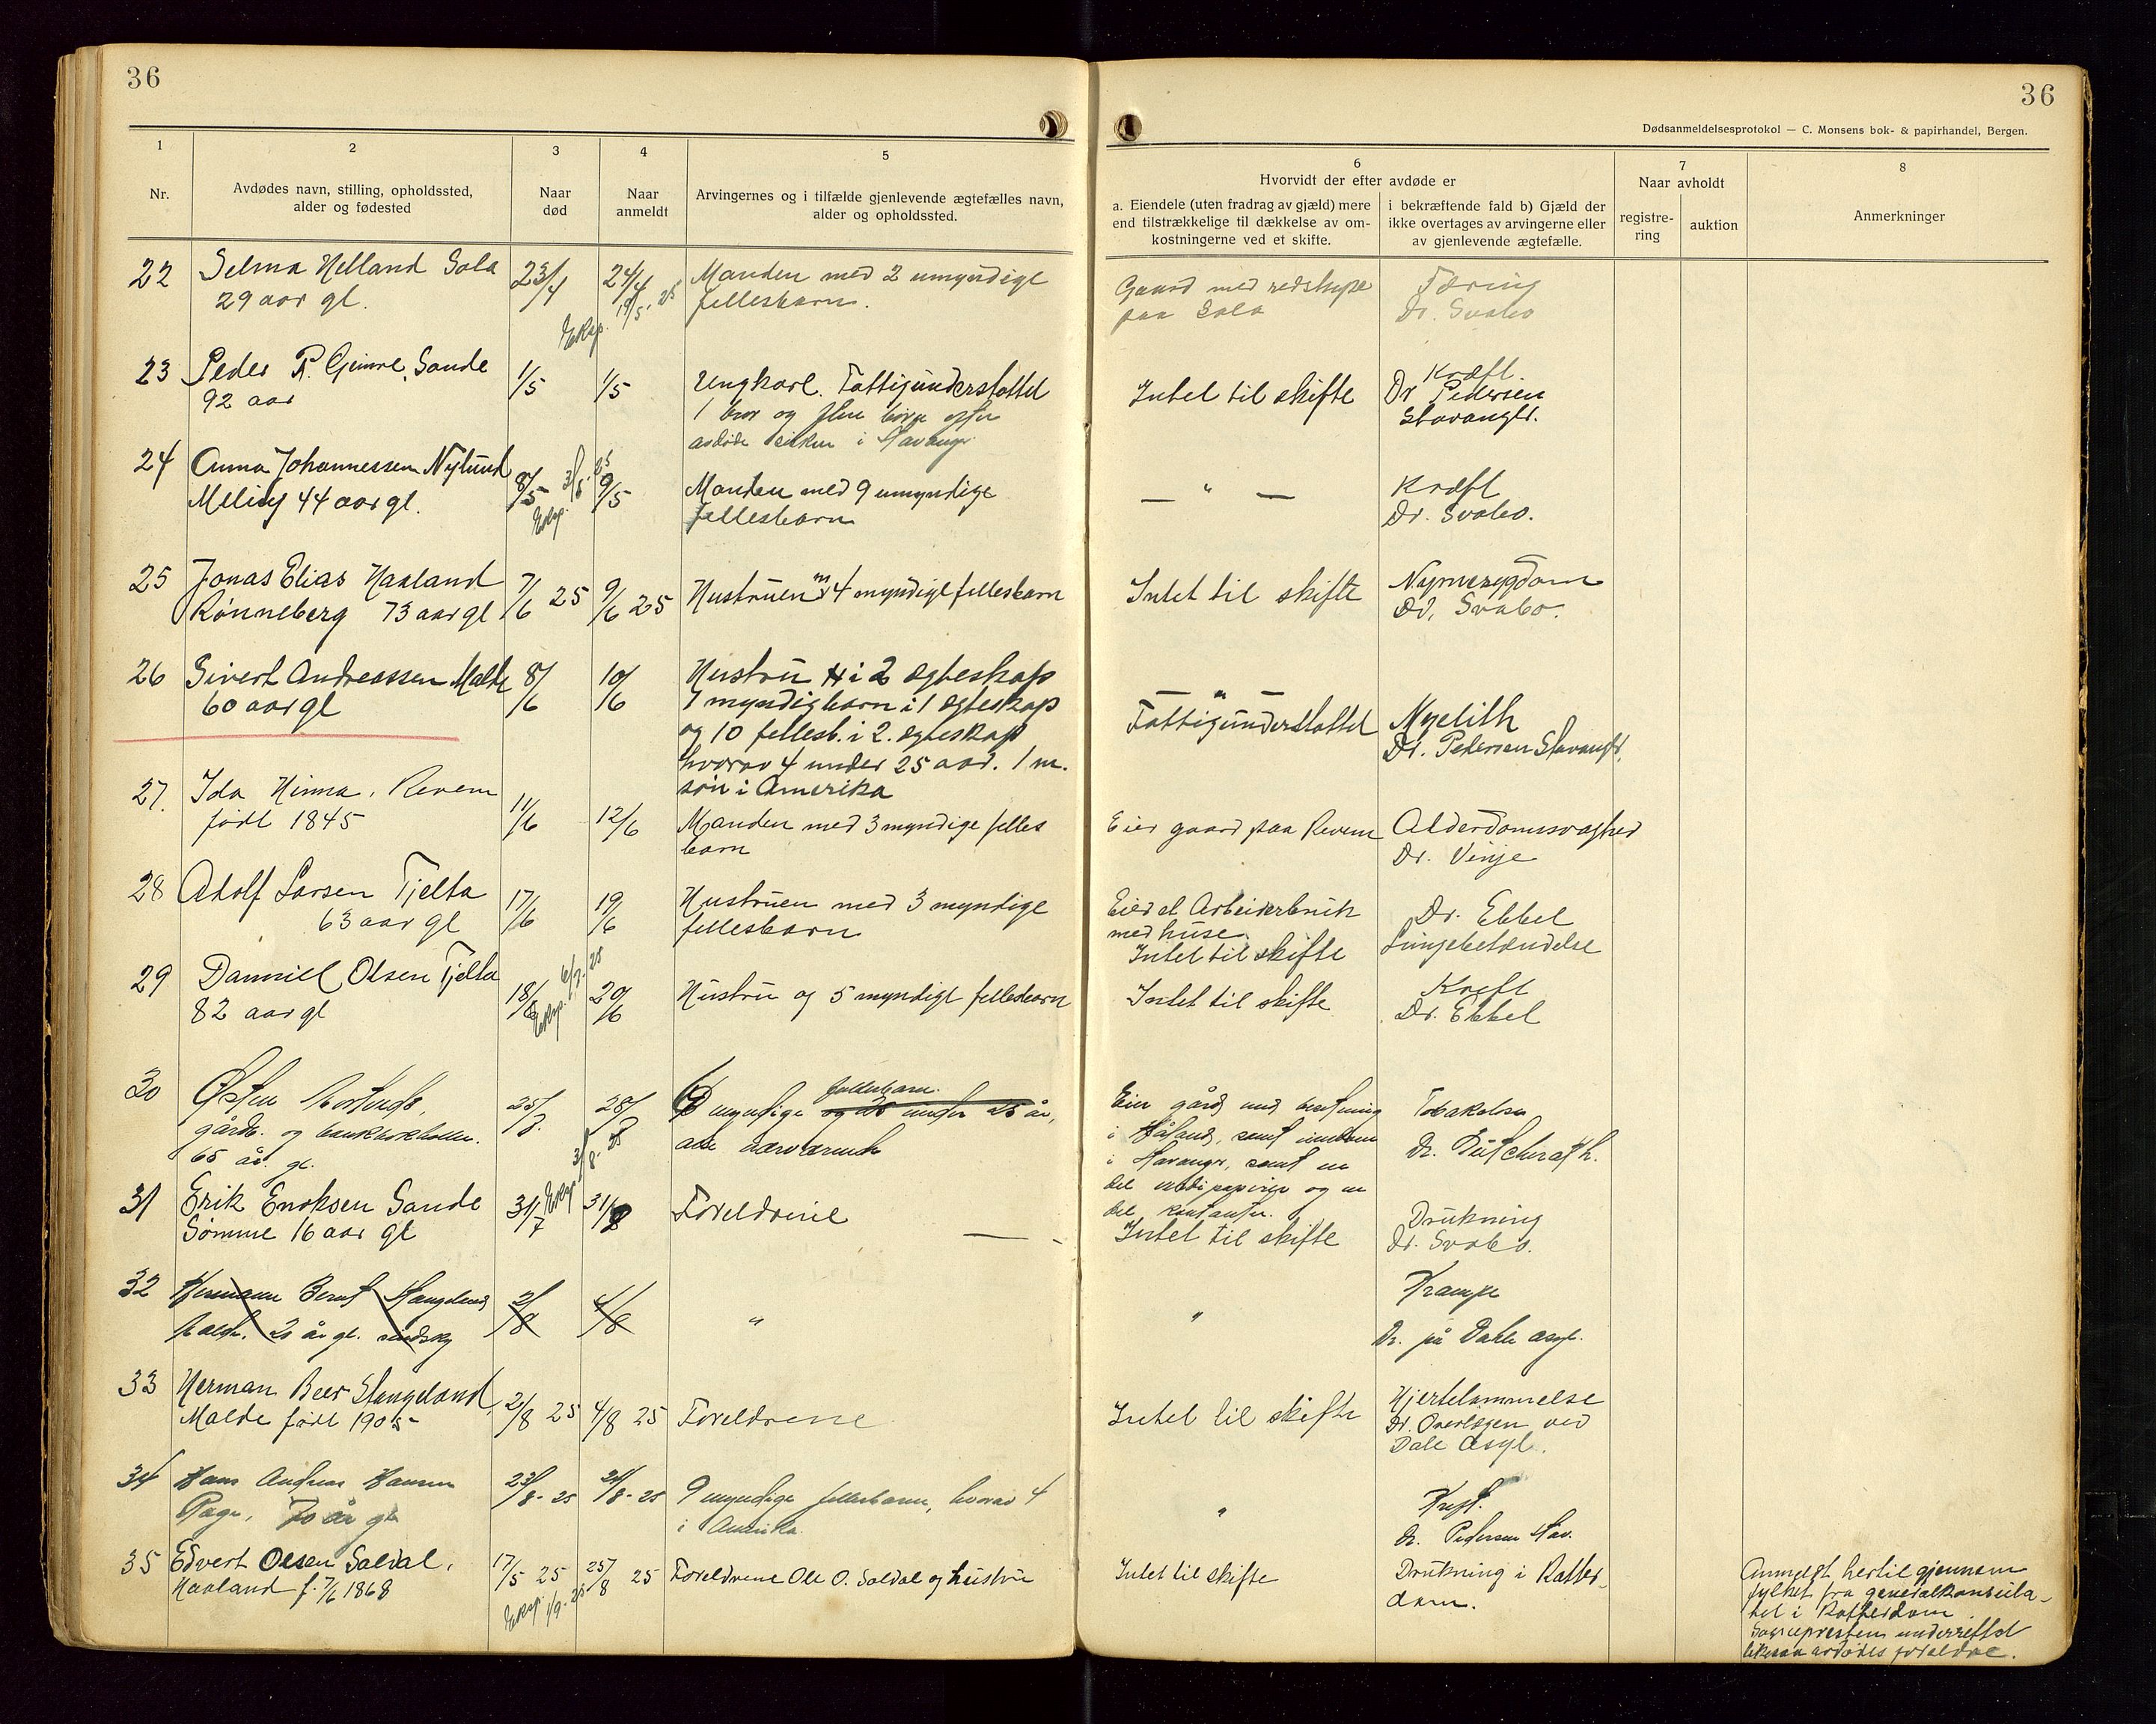 36
36
Dødsanmeldelsesprotokol — C. Monsens bok- & papirhandel, Bergen.
1
Nr.
2
Avdødes navn, stilling, opholdssted,
alder og fødested
3
Naar
død
4
Naar
anmeldt
5
Arvingernes og i tilfælde gjenlevende ægtefælles navn,
alder og opholdssted.
6
Hvorvidt der efter avdøde er
a. Eiendele (uten fradrag av gjæld) mere
end tilstrækkelige til dækkelse av om-
kostningerne ved et skifte.
i bekræftende fald b) Gjæld der
ikke overtages av arvingerne eller
av gjenlevende ægtefælle.
7
Naar avholdt
registre-
ring
auktion
8
Anmerkninger
22 Selma Helland Sola 23/4 24/4 Manden med 2 umyndige
29 aar gl. fellesbarn.
Eksp. 19/5. 25
Gaard med redskape
paa Sola
Tæring
Dr. Svabo
23 Peder P. Gimre, Sande 1/5 1/5 Ungkarl. Fattigunderstøttet
92 aar
1 bror og flere børn efter
avdøde i Stavanger
Intet til skifte
Kræft
Dr Pedersen
Stavanger.
24 Anna Johannessen Nylund 8/5 9/5 Manden med 9 umyndige
Meling 44 aar gl. fellesbarn
Eksp. 3/6. 25
— " —
Kræft
Dr. Svabo.
25 Jonas Elias Haaland 7/6 25 9/6 25 Hustruen m 4 myndige fellesbarn
Rønneberg 73 aar gl
Intet til skifte
Nyresygdom
Dr, Svabo.
26 Sivert Andreassen Malde 8/6 10/6 Hustru i 2 egteskap
60 aar gl 1 myndig barn i 1 egteskap
og 10 fellesb. i 2. egteskap
hvorav 4 under 25 aar. 1 m.
søn i Amerika
— " —
Fattigunderstøttet
Dr. Pedersen Stavanger.
27. Ida Hinna, Revem 11/6 12/6 Manden med 3 myndige felles
født 1845 barn
Eier gaard paa Revem
Alderdomssvaghed
Dr. Vinje
28 Adolf Larsen Tjelta 17/6 19/6 Hustruen med 3 myndige
63 aar gl fellesbarn
Eier et Arbeiderbruk
med huse.
Intet til skifte
Dr. Ebbel
Lungebetændelse
29 Danniel Olsen Tjelta 18/6 20/6 Hustru og 5 myndige fellesbarn
82 aar gl
Eksp. 6/7. 25
Intet til skifte
Kreft
Dr. Ebbel
30 Østen 25/7. 28/7 6 myndige og under 25 år,
fellesbarn.
gårdb. og
65 år. gl. alle nærværende
Eksp. 3/8. 25
Eier gård med besetning
i Håland, samt eiendom
i Stavanger, samt en
del verdipapirer og en
del kontanter.
Dr.
31 Erik Enoksen Sande 31/7 31/8 Foreldrene
Sømme 16 aar gl
Intet til skifte
Drukning
Dr. Svabo.
32 Hermann Bernt Stangeland 2/8 4/8 "
Malde. 20 år gl. sindssyg
"
Krampe
Dr. på Dale asyl.
33 Herman Beer Stangeland, 2/8 25 4/8 25 Foreldrene
Malde født 1905
Intet til skifte
Hjertelammelse
Dr. Overlægen ved
Dale Asyl.
34 Hans Andreas Hansen 23/8 - 25 24/8 - 25 9 myndige fellesbarn, hvorav 4
Rage, 70 år gl i Amerika.
"
Kreft.
Dr. Pedersen Stav.
35 Edvert Olsen Soldal, 17/5 25 25/8 25 Foreldrene Ole O. Soldal og hustru
Haaland f. 7/6 1868
Eksp. 1/9. 25
Intet til skifte
Drukning i Rotter-
dam.
Anmeldt hertil gjennem
fylket fra generalkonsula-
tet i Rotterdam
Sognepresten underrettet
likesaa avdødes foreldre.